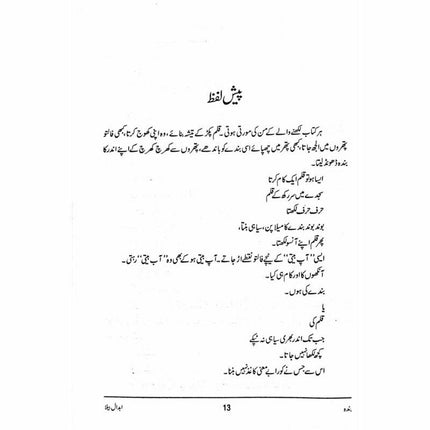 پیش لفظ
ہر کتاب لکھنے والے کے من کی مورتی ہوتی۔ قلم پکڑ کے تیشہ بنائے، وہ اپنی کھوج کرتا، کبھی فالتو
پتھروں میں الجھ جاتا، کبھی پتھر میں چھپائے اسی بندے کو باندھے، پتھروں سے کھرچ کھرچ کے اپنے اندر کا
بندہ ڈھونڈ لیتا۔
ایسا ہو تو قلم ایک کام کرتا
سجدے میں سر رکھ کے قلم
حرف حرف لکھتا
بوند بوند بندے کا میلا پن، سیاہی بنتا،
پھر قلم اپنے آنسو لکھتا۔
ایسی "آپ بیتی" کے نیچے فالتو نقطے اڑ جاتے۔ آپ بیتی ہو کے بھی وہ "آب بیتی" رہتی۔
آنکھوں کا اور کام ہی کیا۔
بندے کی ہوں۔
یا
قلم کی
جب تک اندر بھری سیاہی نہ ٹپکے
کچھ لکھا نہیں جاتا۔
اس سے جس نے کورا بے معنی کاغذ نہیں بننا۔
بندہ
13
ابدال بیلا